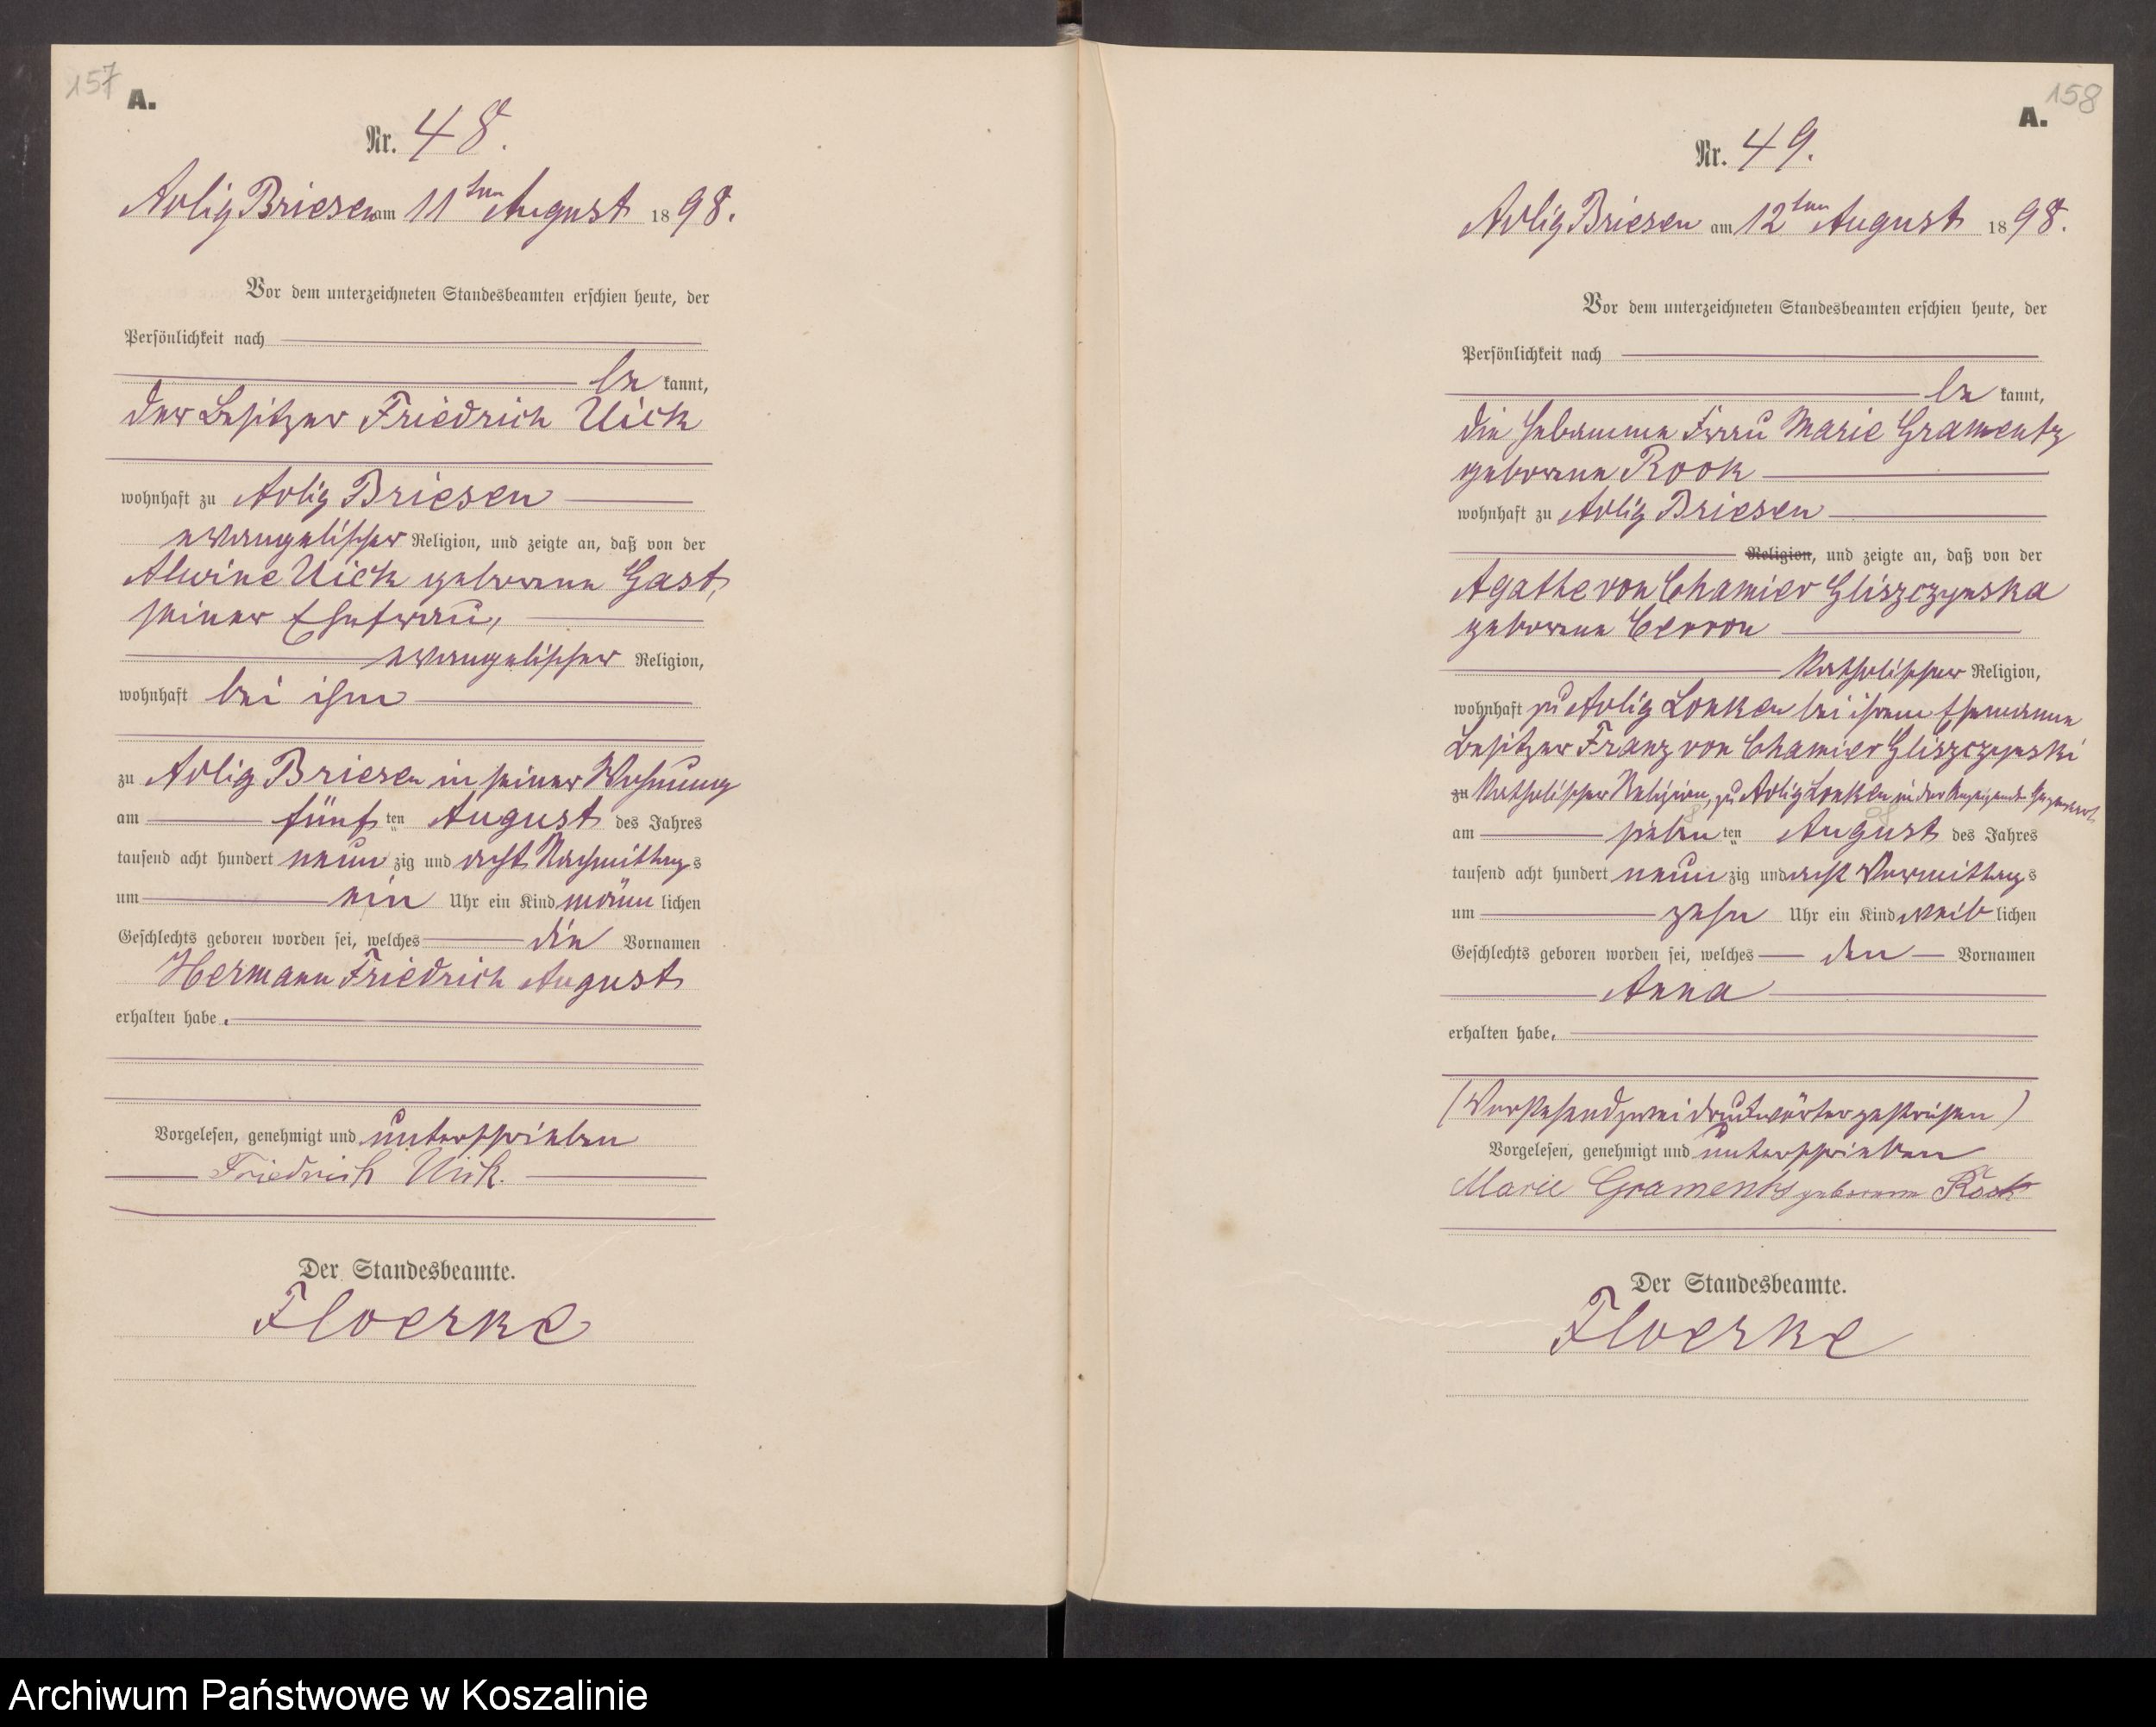 157
A.
Nr. 48.
Adlig Briesen am 11ten August 1898.
Vor dem unterzeichneten Standesbeamten erschien heute, der
Persönlichkeit nach
be kannt,
der Besitzer Friedrich Uick
wohnhaft zu Adlig Briesen
evangelischer Religion, und zeigte an, daß von der
Alwine Uick geborene Gast,
seiner Ehefrau,
evangelischer Religion,
wohnhaft bei ihm
zu Adlig Briesen in seiner Wohnung
am fünf ten August des Jahres
tausend acht hundert neun zig und acht Nachmittags
um ein Uhr ein Kind männ lichen
Geschlechts geboren worden sei, welches die Vornamen
Hermann Friedrich August
erhalten habe.
Vorgelesen, genehmigt und unterschrieben
Friedrich Uick.
Der Standesbeamte.
Floerke
158
A.
Nr. 49.
Adlig Briesen am 12ten August 1898.
Vor dem unterzeichneten Standesbeamten erschien heute, der
Persönlichkeit nach
be kannt,
die Hebamme Frau Marie Gramentz
geborene Rook
wohnhaft zu Adlig Briesen
Religion, und zeigte an, daß von der
Agathe von Chamier Gliszczynska
geborene Cerron
katholischer Religion,
wohnhaft zu Adlig Lonken bei ihrem Ehemanne
Besitzer Franz von Chamier Gliszczynski
zu katholischer Religion, zu Adlig Lonken in der Anzeigende Gegenwart
am sieben ten August des Jahres
tausend acht hundert neun zig und acht Vormittags
um zehn Uhr ein Kind weib lichen
Geschlechts geboren worden sei, welches den Vornamen
Anna
erhalten habe.
(Vorstehend zwei Druckwörter gestrichen)
Vorgelesen, genehmigt und unterschrieben
Marie Gramentz geborene Rook
Der Standesbeamte.
Floerke
Archiwum Państwowe w Koszalinie